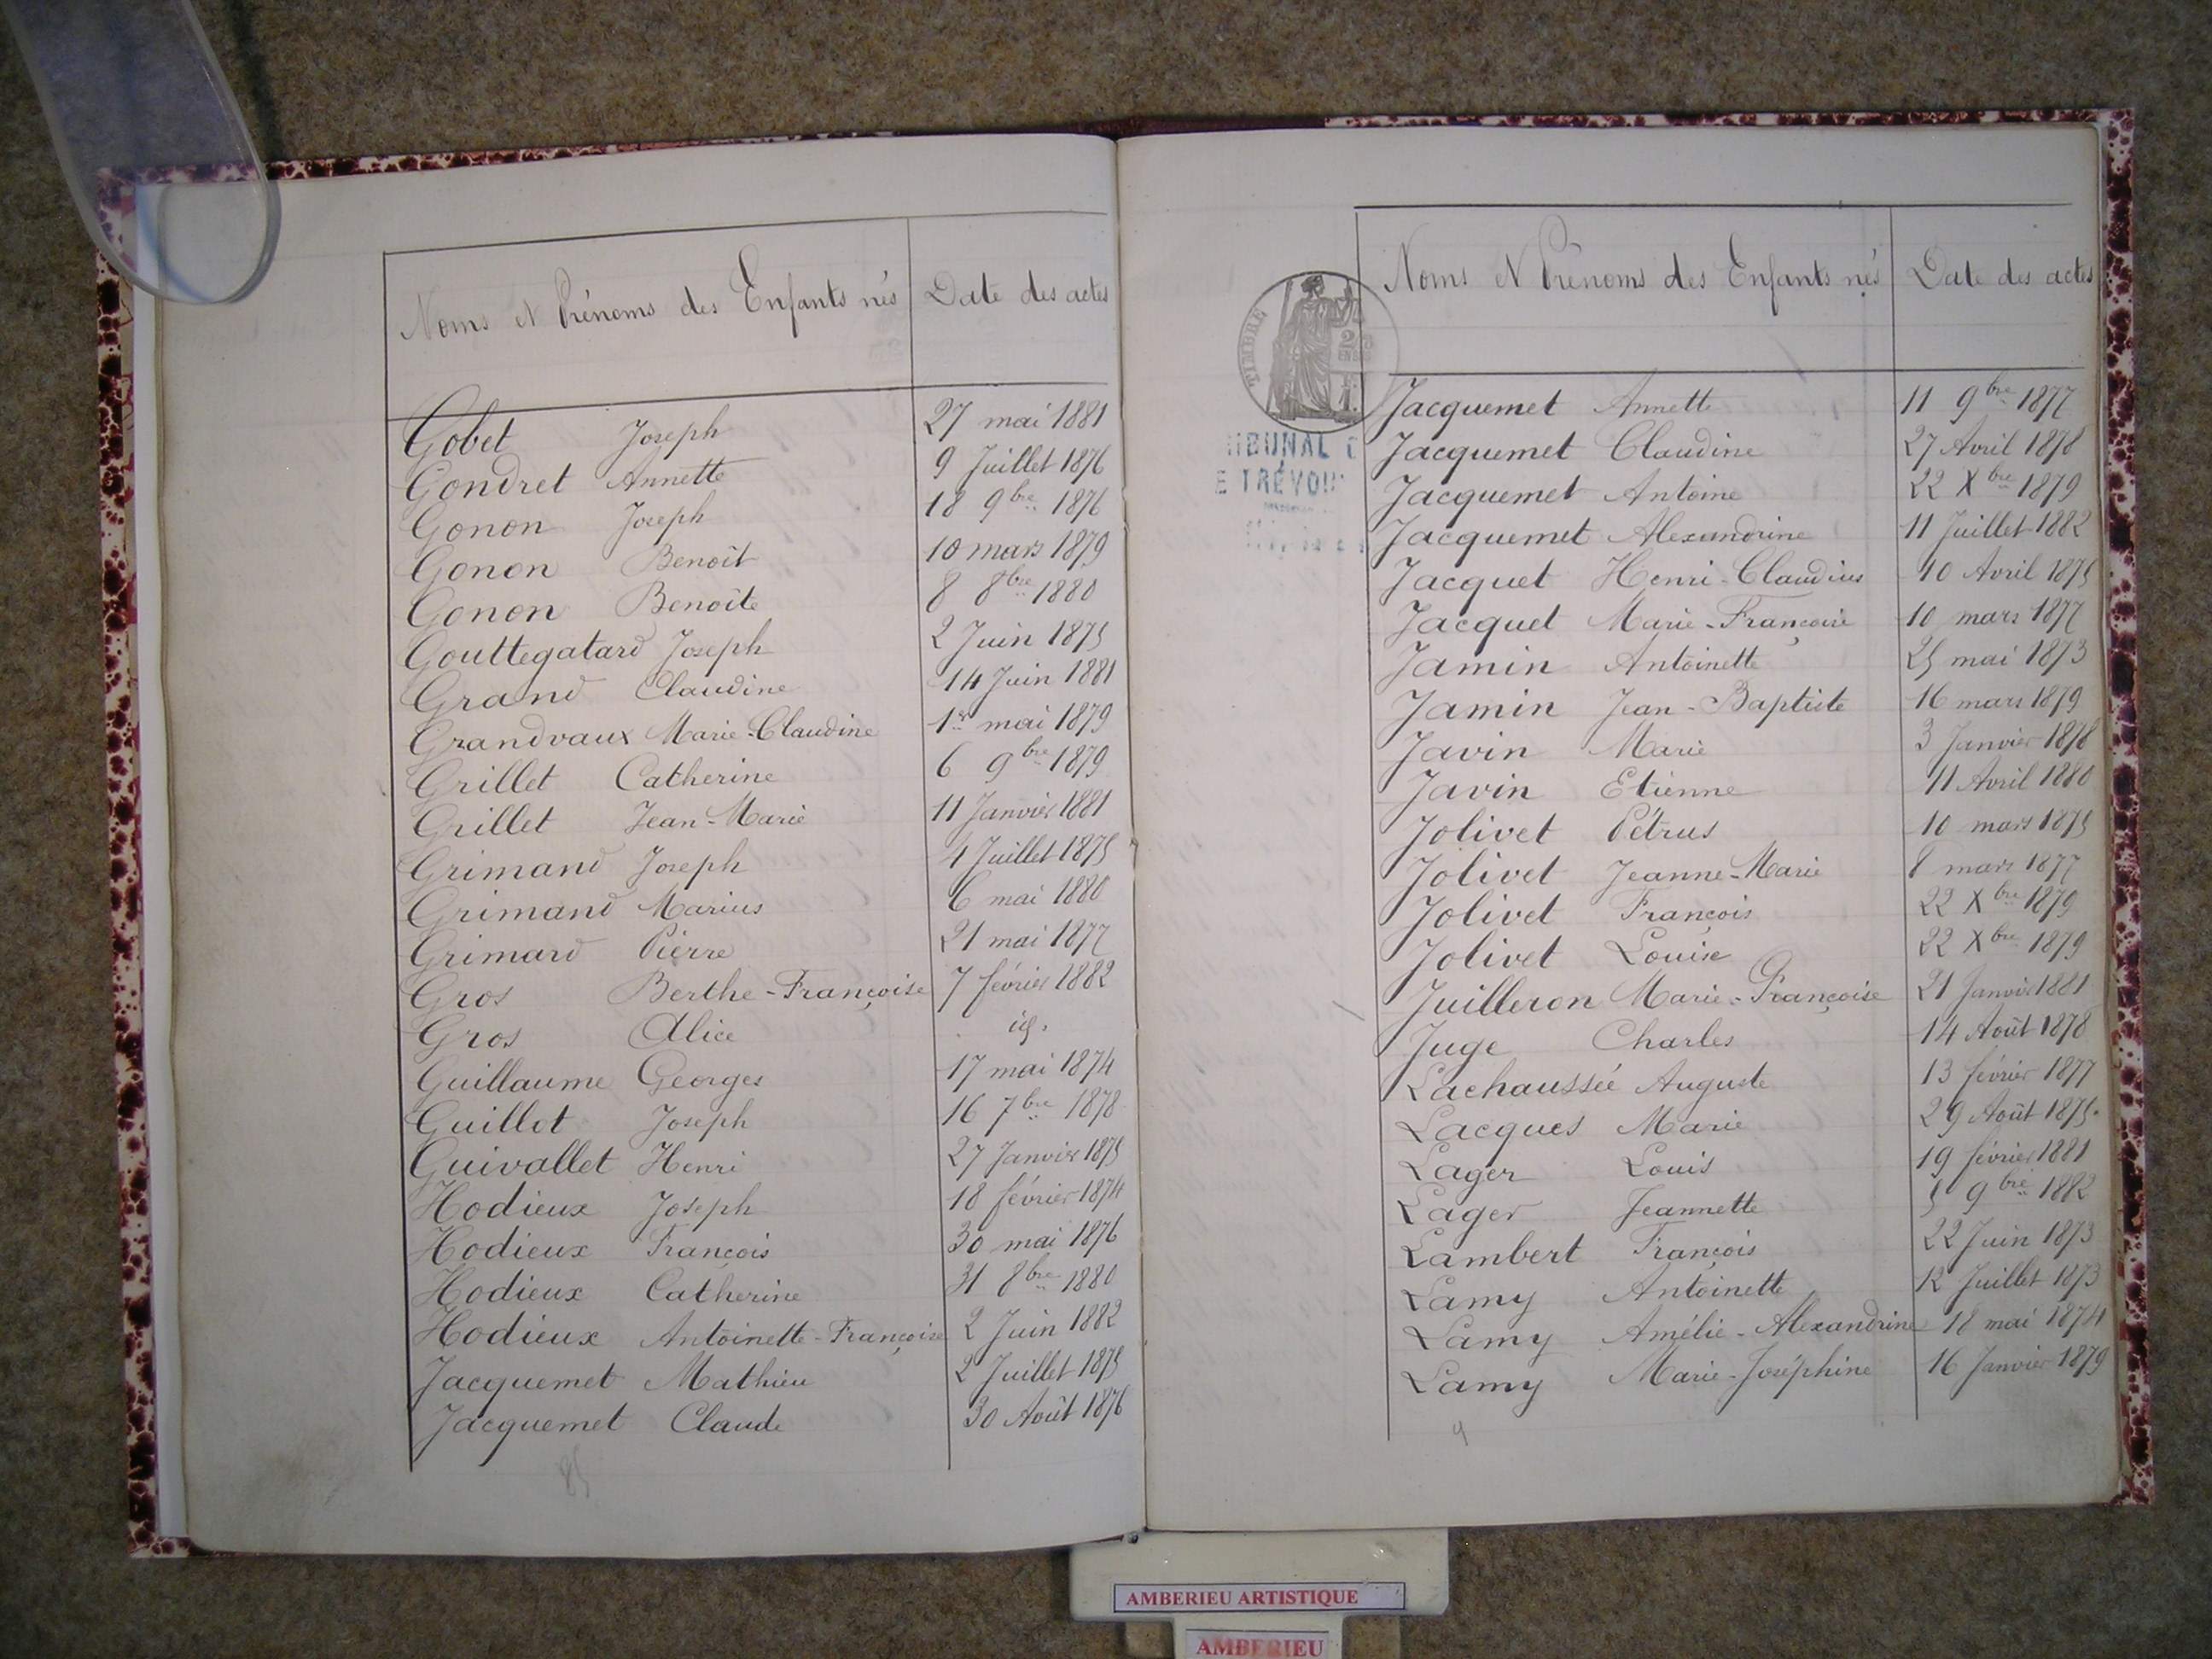 Noms et Prénoms des Enfants nés Date des actes
Gobet Joseph 27 mai 1881
Gondret Annette 9 Juillet 1876
Gonon Joseph 18 9bre 1876
Gonon Benoît 10 mars 1879
Gonon Benoîte 8 8bre 1880
Gouttegatard Joseph 2 Juin 1875
Grand Claudine 14 Juin 1881
Grandvaux Marie-Claudine 1er mai 1879
Grillet Catherine 6 9bre 1879
Grillet Jean-Marie 11 Janvier 1881
Grimand Joseph 4 Juillet 1875
Grimand Marius 6 mai 1880
Grimard Pierre 21 mai 1877
Gros Berthe-Françoise 7 février 1882
Gros Alice id.
Guillaume Georges 17 mai 1874
Guillot Joseph 16 7bre 1878
Guivallet Henri 27 Janvier 1875
Hodieux Joseph 18 février 1874
Hodieux François 30 mai 1876
Hodieux Catherine 31 8bre 1880
Hodieux Antoinette-Françoise 2 Juin 1882
Jacquemet Mathieu 2 Juillet 1875
Jacquemet Claude 30 Août 1876
85
Noms et Prénoms des Enfants nés Date des actes
TIMBRE
Jacquemet Annette 11 9bre 1877
Jacquemet Claudine 27 Avril 1878
Jacquemet Antoine 22 Xbre 1879
Jacquemet Alexandrine 11 Juillet 1882
Jacquet Henri-Claudius 10 Avril 1875
Jacquet Marie-Françoise 10 mars 1877
Jamin Antoinette 25 mai 1873
Jamin Jean-Baptiste 16 mars 1879
Javin Marie 3 Janvier 1878
Javin Etienne 11 Avril 1880
Jolivet Pétrus 10 mars 1875
Jolivet Jeanne-Marie 8 mars 1877
Jolivet François 22 Xbre 1879
Jolivet Louise 22 Xbre 1879
Juilleron Marie-Françoise 21 Janvier 1881
Juge Charles 14 Août 1878
Lachaussée Auguste 13 février 1877
Lacques Marie 29 Août 1875.
Lager Louis 19 février 1881
Lager Jeannette 5 9bre 1882
Lambert François 22 Juin 1873
Lamy Antoinette 12 Juillet 1873
Lamy Amélie-Alexandrine 18 mai 1874
Lamy Marie-Joséphine 16 Janvier 1879
9
IBUNAL
E TRÉVOU
AMBERIEU ARTISTIQUE
AMBERIEU